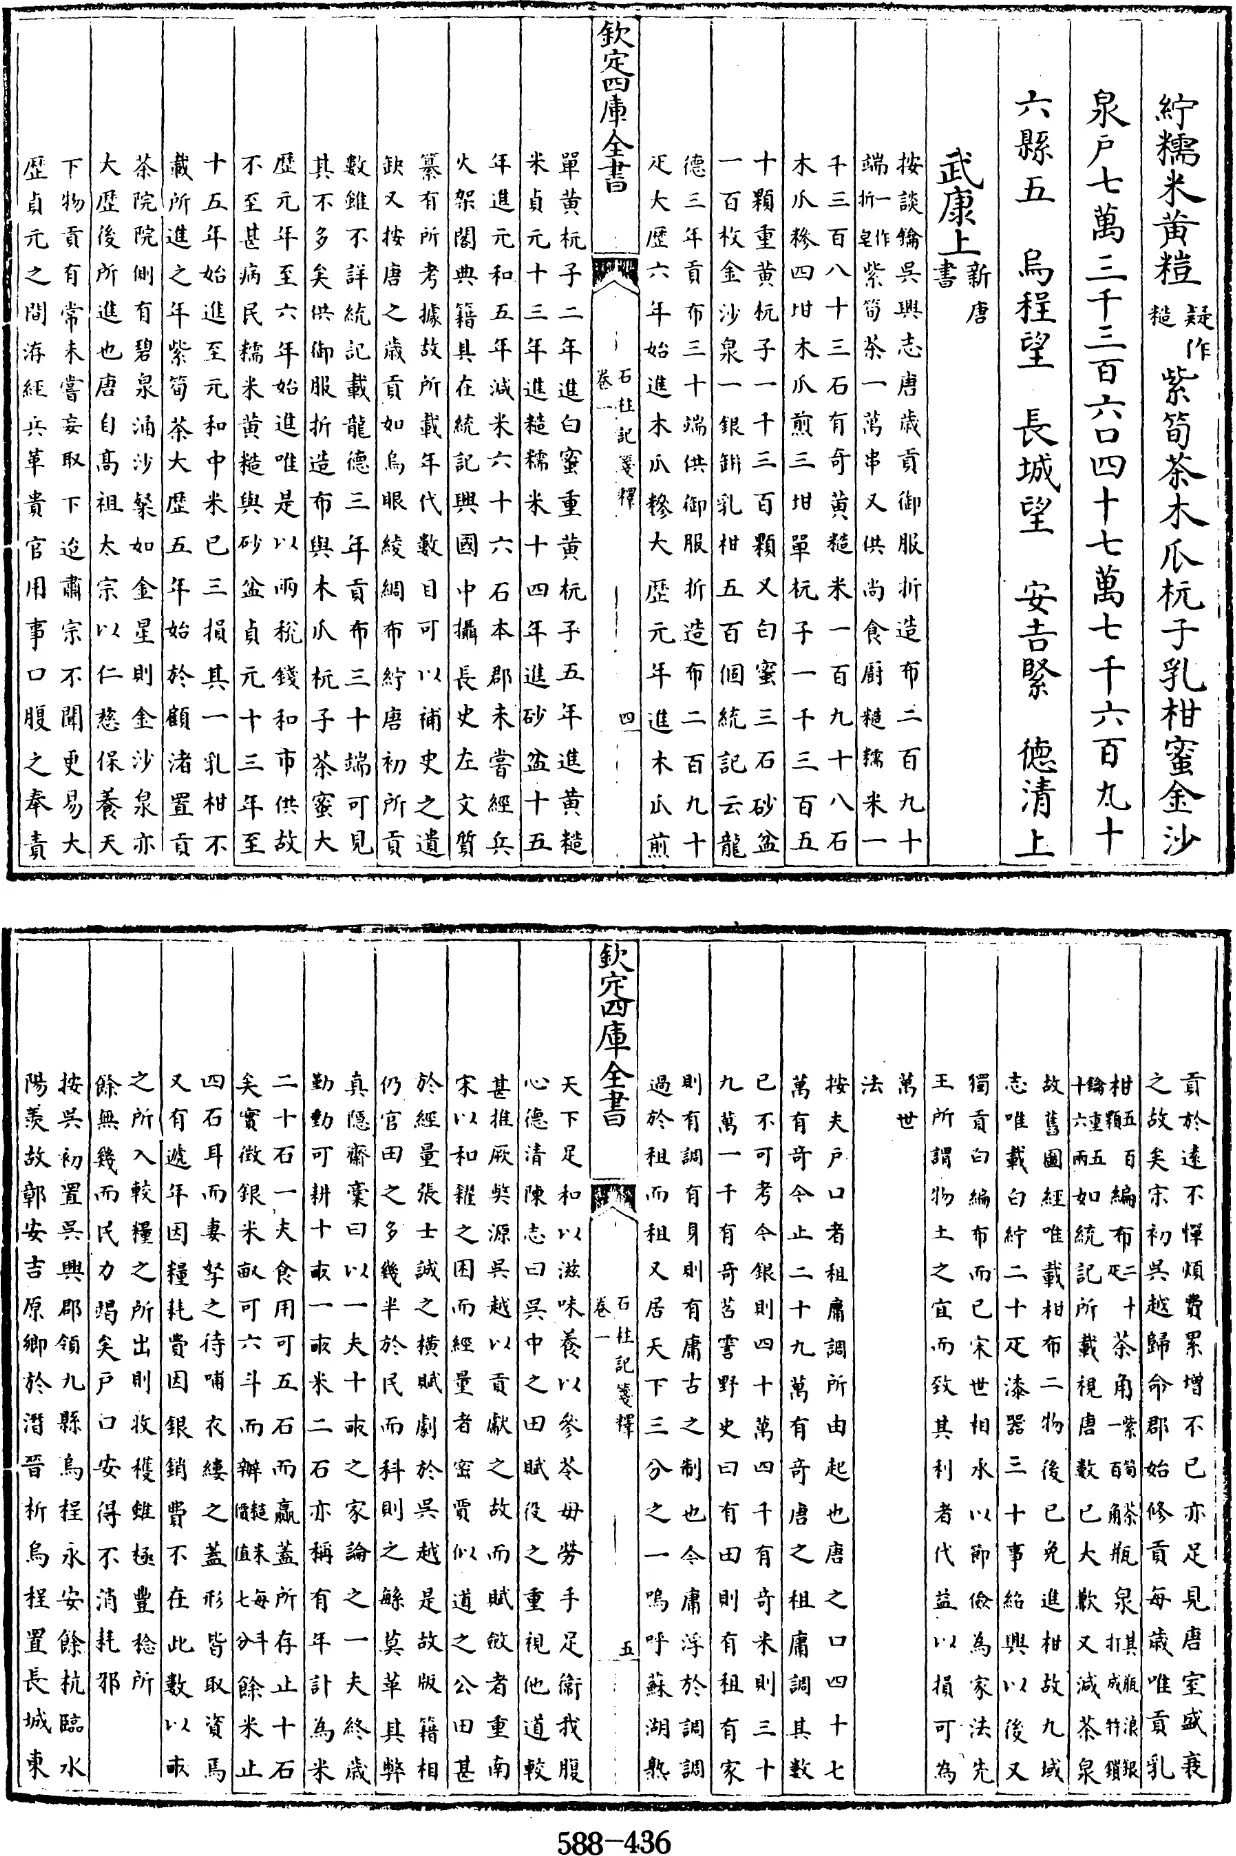 紵糯米黃糙疑作糙紫筍茶木瓜杬子乳柑蜜金沙
泉戶七萬三千三百六口四十七萬七千六百九十
六縣五 烏程望 長城望 安吉緊 德清上
武康上新唐書
按談鑰吳興志唐歲貢御服折造布二百九十
端折一作皂紫筍茶一萬串又供尚食廚糙糯米一
千三百八十三石有奇黃糙米一百九十八石
木瓜糝四坩木瓜煎三坩單杬子一千三百五
十顆重黃杬子一千三百顆又白蜜三石砂盆
一百枚金沙泉一銀缾乳柑五百個統記云龍
德三年貢布三十端供御服折造布二百九十
疋大歷六年始進木瓜糝大歷元年進木瓜煎
單黃杬子二年進白蜜重黃杬子五年進黃糙
米貞元十三年進糙糯米十四年進砂盆十五
年進元和五年減米六十六石本郡未嘗經兵
火架閣典籍具在統記興國中攝長史左文質
纂有所考據故所載年代數目可以補史之遺
缺又按唐之歲貢如烏眼綾綢布紵唐初所貢
數雖不詳統記載龍德三年貢布三十端可見
其不多矣供御服折造布與木瓜杬子茶蜜大
歷元年至六年始進唯是以兩稅錢和市供故
不至甚病民糯米黃糙與砂盆貞元十三年至
十五年始進至元和中米已三損其一乳柑不
載所進之年紫筍茶大歷五年始於顧渚置貢
茶院院側有碧泉涌沙粲如金星則金沙泉亦
大歷後所進也唐自高祖太宗以仁慈保養天
下物貢有常未嘗妄取下迨肅宗不聞更易大
歷貞元之間洊經兵革貴官用事口腹之奉責
欽定四庫全書
石柱記箋釋
卷一
四
貢於遠不憚煩費累增不已亦足見唐室盛衰
之故矣宋初吳越歸命郡始修貢每歲唯貢乳
柑五百顆編布二十疋茶角一百角紫筍茶瓶泉其瓶浪銀打成竹鎖
鑰重五十六兩如統記所載視唐數已大歉又減茶泉
故舊圖經唯載柑布二物後已免進柑故九域
志唯載白紵二十疋漆器三十事紹興以後又
獨貢白編布而已宋世相承以節儉為家法先
王所謂物土之宜而致其利者代益以損可為
萬世
法
按夫戶口者租庸調所由起也唐之口四十七
萬有奇今止二十九萬有奇唐之租庸調其數
已不可考今銀則四十萬四千有奇米則三十
九萬一千有奇苕霅野史曰有田則有租有家
則有調有身則有庸古之制也今庸浮於調調
過於租而租又居天下三分之一嗚呼蘇湖熟
天下足和以滋味養以參苓毋勞手足衞我腹
心德清陳志曰吳中之田賦役之重視他道較
甚推厥獘源吳越以貢獻之故而賦斂者重南
宋以和糴之困而經量者密賈似道之公田甚
於經量張士誠之橫賦劇於吳越是故版籍相
仍官田之多幾半於民而科則之繇莫革其弊
真隱齋稾曰以一夫十畝之家論之一夫終歲
勤動可耕十畝一畝米二石亦稱有年計為米
二十石一夫食用可五石而贏蓋所存止十石
矣實徵銀米畝可六斗而辦糙米每斗價值七分餘米止
四石耳而妻孥之待哺衣縷之蓋形皆取資焉
又有遞年因糧耗費因銀銷費不在此數以畝
之所入較糧之所出則收穫雖極豐稔所
餘無幾而民力竭矣戶口安得不消耗邪
按吳初置吳興郡領九縣烏程永安餘杭臨水
陽羨故鄣安吉原鄉於潛晉析烏程置長城東
欽定四庫全書
石柱記箋釋
卷一
五
588-436